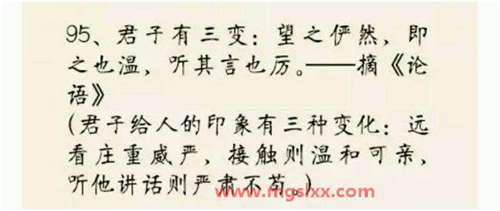 95、君子有三变：望之俨然，即
之也温，听其言也厉。——摘《论
语》
(君子给人的印象有三种变化：远
看庄重威严，接触则温和可亲，
听他讲话则严肃不苟。)
www.mgslxx.com